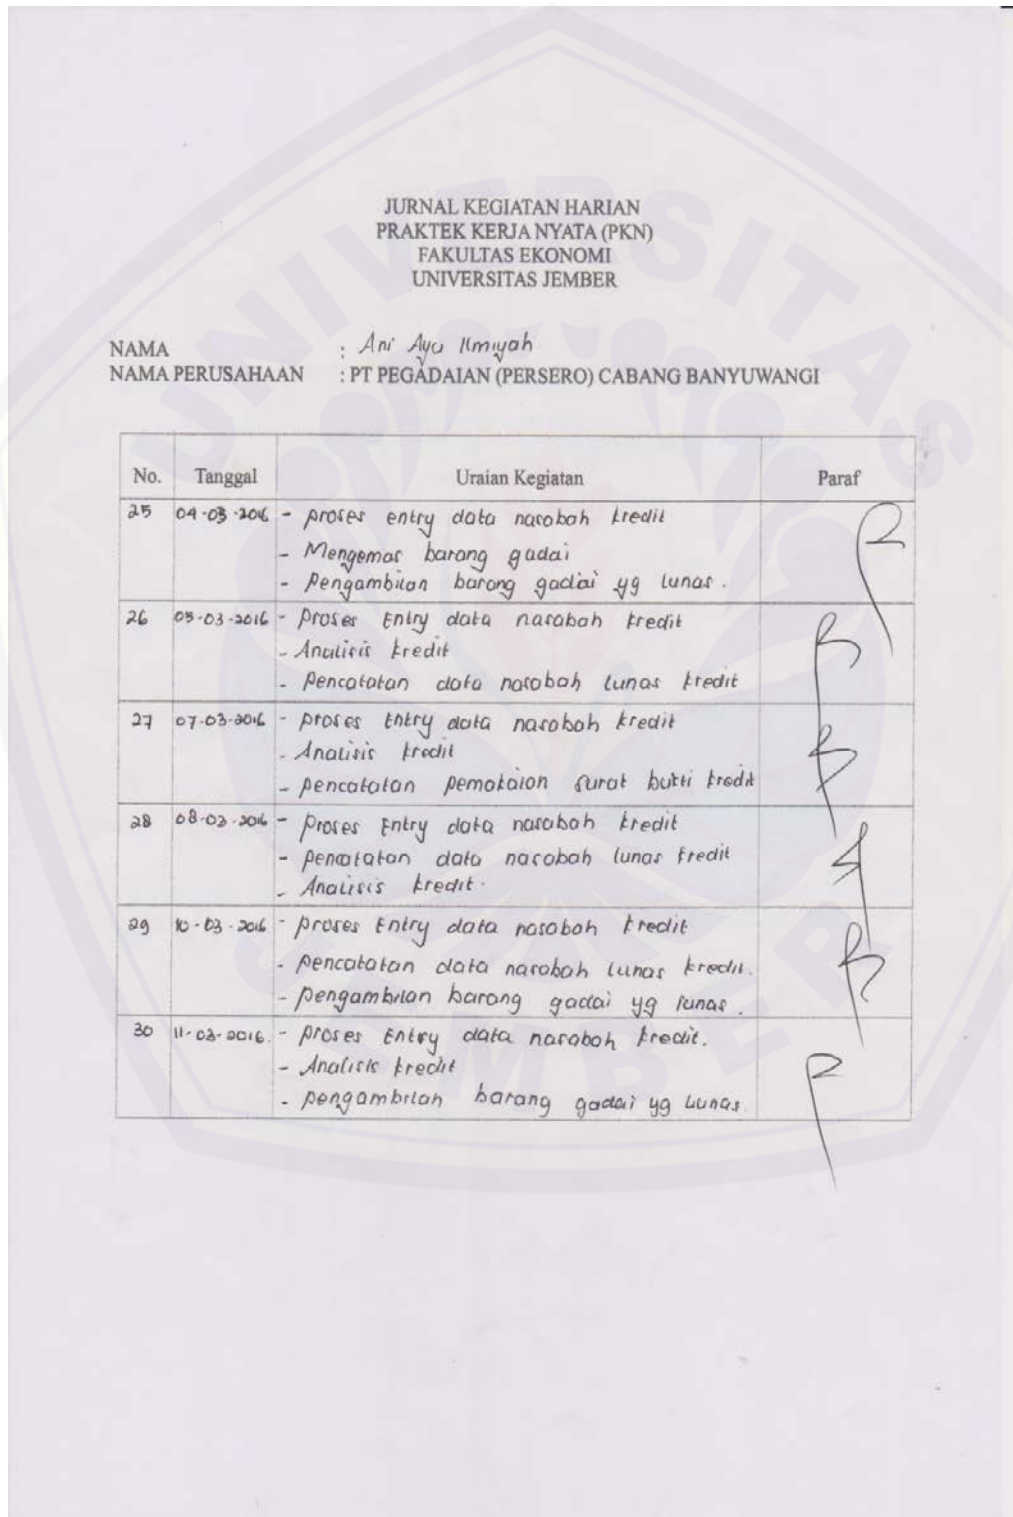 UNIVERSITAS
JEMBER
JURNAL KEGIATAN HARIAN
PRAKTEK KERJA NYATA (PKN)
FAKULTAS EKONOMI
UNIVERSITAS JEMBER
NAMA : Ani Ayu Ilmiyah
NAMA PERUSAHAAN : PT PEGADAIAN (PERSERO) CABANG BANYUWANGI
No. Tanggal Uraian Kegiatan Paraf
25 04-03-2016 - proses entry data nasabah kredit
- Mengemas barang gadai
- Pengambilan barang gadai yg lunas.
26 05-03-2016 - Proses Entry data nasabah kredit
- Analisis kredit
- Pencatatan data nasabah lunas kredit
27 07-03-2016 - proses Entry data nasabah kredit
- Analisis kredit
- pencatatan pemakaian surat bukti kredit
28 08-03-2016 - Proses Entry data nasabah kredit
- pencatatan data nasabah lunas kredit
- Analisis kredit.
29 10-03-2016 - proses Entry data nasabah kredit
- pencatatan data nasabah lunas kredit.
- pengambilan barang gadai yg lunas.
30 11-03-2016. - proses Entry data nasabah kredit.
- Analisis kredit
- pengambilan barang gadai yg Lunas.